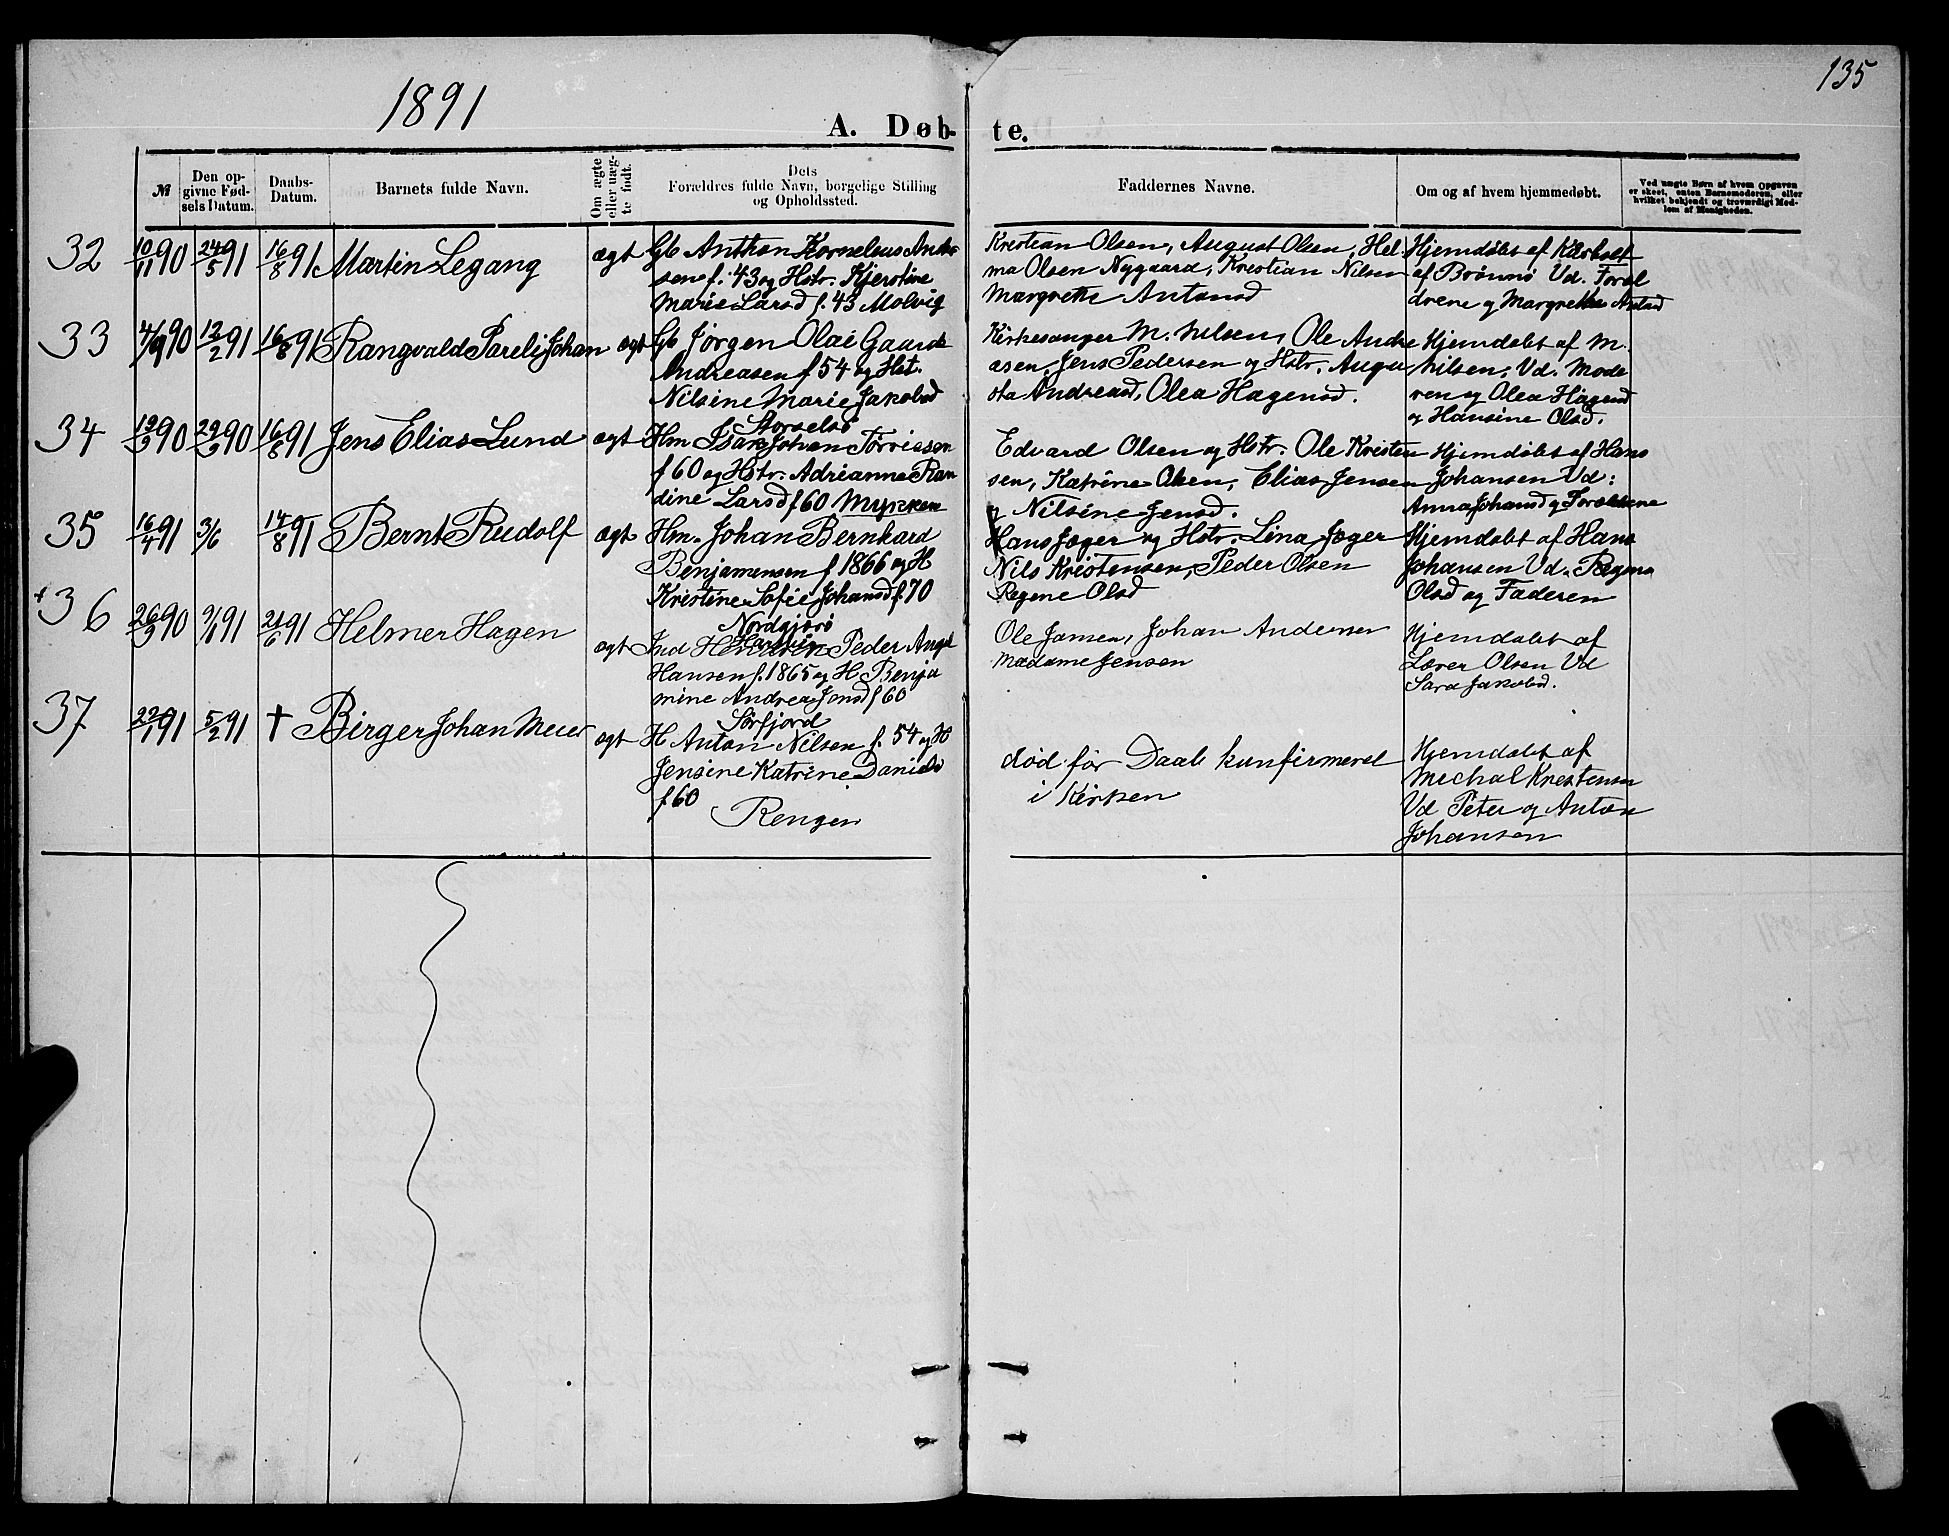 1891
135
A. Døb-
te.
№
Den op-
givne Fød-
sels Datum.
Daabs-
Datum.
Barnets fulde Navn.
Om ægte
eller uæg-
te født.
Dets
Forældres fulde Navn, borgelige Stilling
og Opholdssted.
Faddernes Navne.
Om og af hvem hjemmedøbt.
Ved uægte Børn af hvem Opgaven
er skeet, enten Barnemoderen, eller
hvilket bekjendt og troværdigt Med-
lem af Menigheden.
32 10/11 90 24/5 91 16/8 91 Martin Legang ægt Gb Anthon Kornelius Andr
sen f. 43 og Hstr. Kjerstine
Marie Larsd f. 43 Molvig
Kristian Olsen, August Olsen, Hel
ma Olsen Nygaard, Kristian Nilsen
Margrethe Antonsd
Hjemdøbt af
af Brønnø Vd. Foræl
drene og Margrethe
33 4/9 90 12/2 91 16/8 91 Rangvald Pareli Johan ægt Gb Jørgen Olai Gaards
Andreasen f 54 og Hst.
Nilsine Marie Jakobsd
Storselsø
Kirkesanger M. Nilsen, Ole Andre
asen, Jens Pedersen og Hstr. Augu
sta Andreasd, Olea Hagensd.
Hjemdøbt af M.
Nilsen, Vd. Mode
ren og Olea Hagensd
og Hansine Olsd.
34 90 90 16/8 91 Jens Elias Lund ægt Hm Isak Johan
f 60 og Hstr. Adrianna Ran
dine Larsd f 60 Myrken
Edvard Olsen og Hstr. Ole Kristen
sen, Katrine Olsen, Elias Jensen
og Nilsine Jensd.
Hjemdøbt af Hans
Johansen Vd:
Anna Johansd og Forældrene
35 16/4 91 3/6 14/8 91 Bernt Rudolf ægt Hm. Johan Bernhard
Benjamensen f 1866 og H
Kristine Sofie Johansd f. 70
Hans Jæger og Hstr. Lina Jæger
Nils Kristensen, Peder Olsen
Regine Olsd
Hjemdøbt af Hans
Johansen Vd. Regina
Olsd og Faderen
36 26/9 90 91 91 Helmer Hagen ægt Ind Peder Angel
Hansen f. 1865 og H Benja
mine Andrea Jonsd f 60
Sørfjord
Ole Jansen, Johan Andersen
Madame Jensen
Hjemdøbt af
Lærer Olsen Vd
Sara Jakobsd.
37 22/1 91 5/2 91 † Birger Johan Meier ægt H Anton Nilsen f. 54 og H
Jensine Katrine Daniels
f 60
Rengen
død før Daab kunfirmeret
i Kirken
Hjemdøbt af
Michal Kristensen
Vd Peter og Anton
Johansen